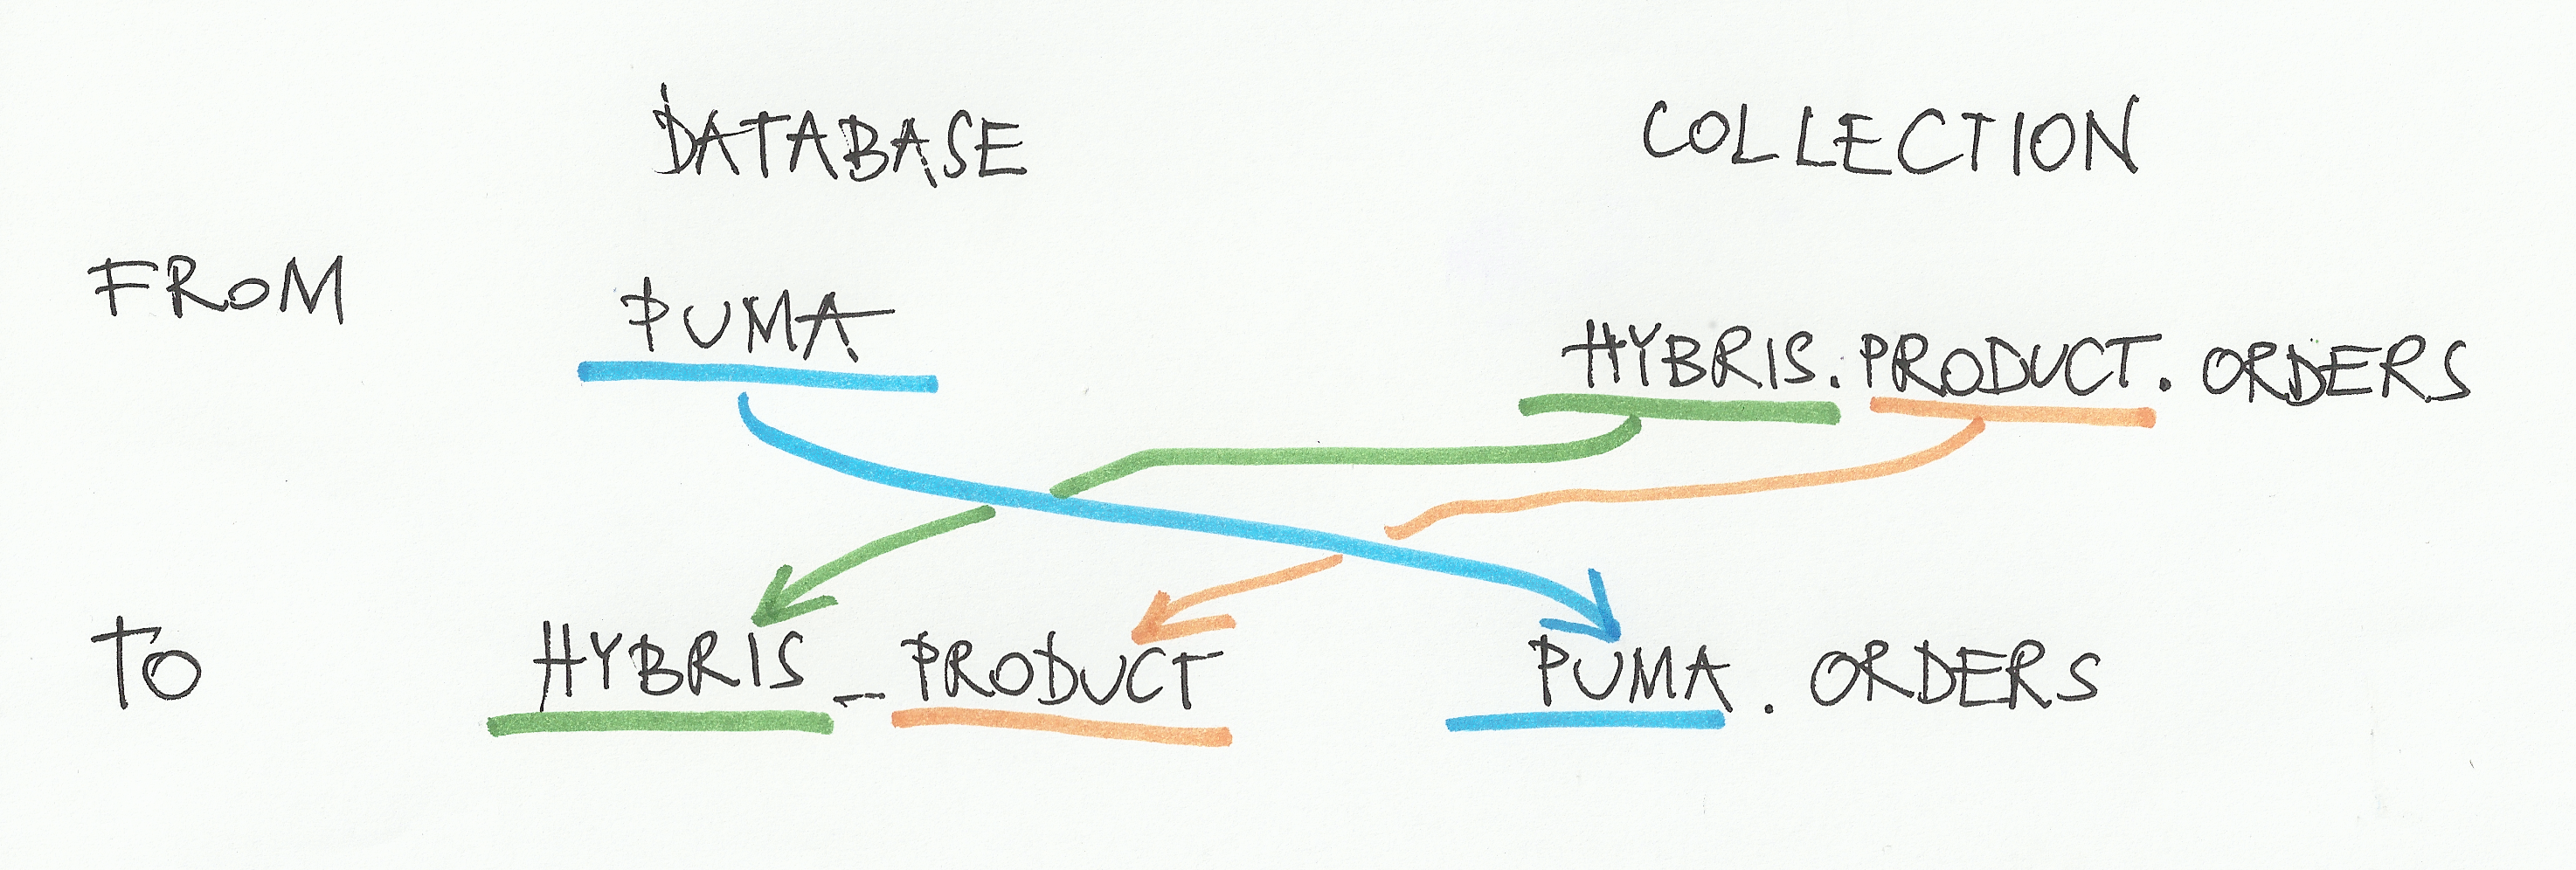 DATABASE COLLECTION
FROM PUMA HYBRIS.PRODUCT.ORDERS
TO HYBRIS_PRODUCT PUMA.ORDERS